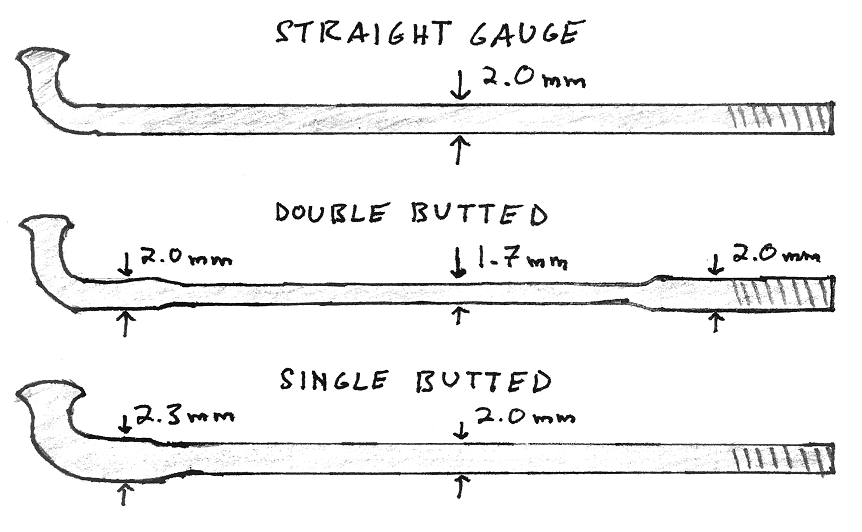 STRAIGHT GAUGE
2.0mm
DOUBLE BUTTED
2.0mm 1.7mm 2.0mm
SINGLE BUTTED
2.3mm 2.0mm